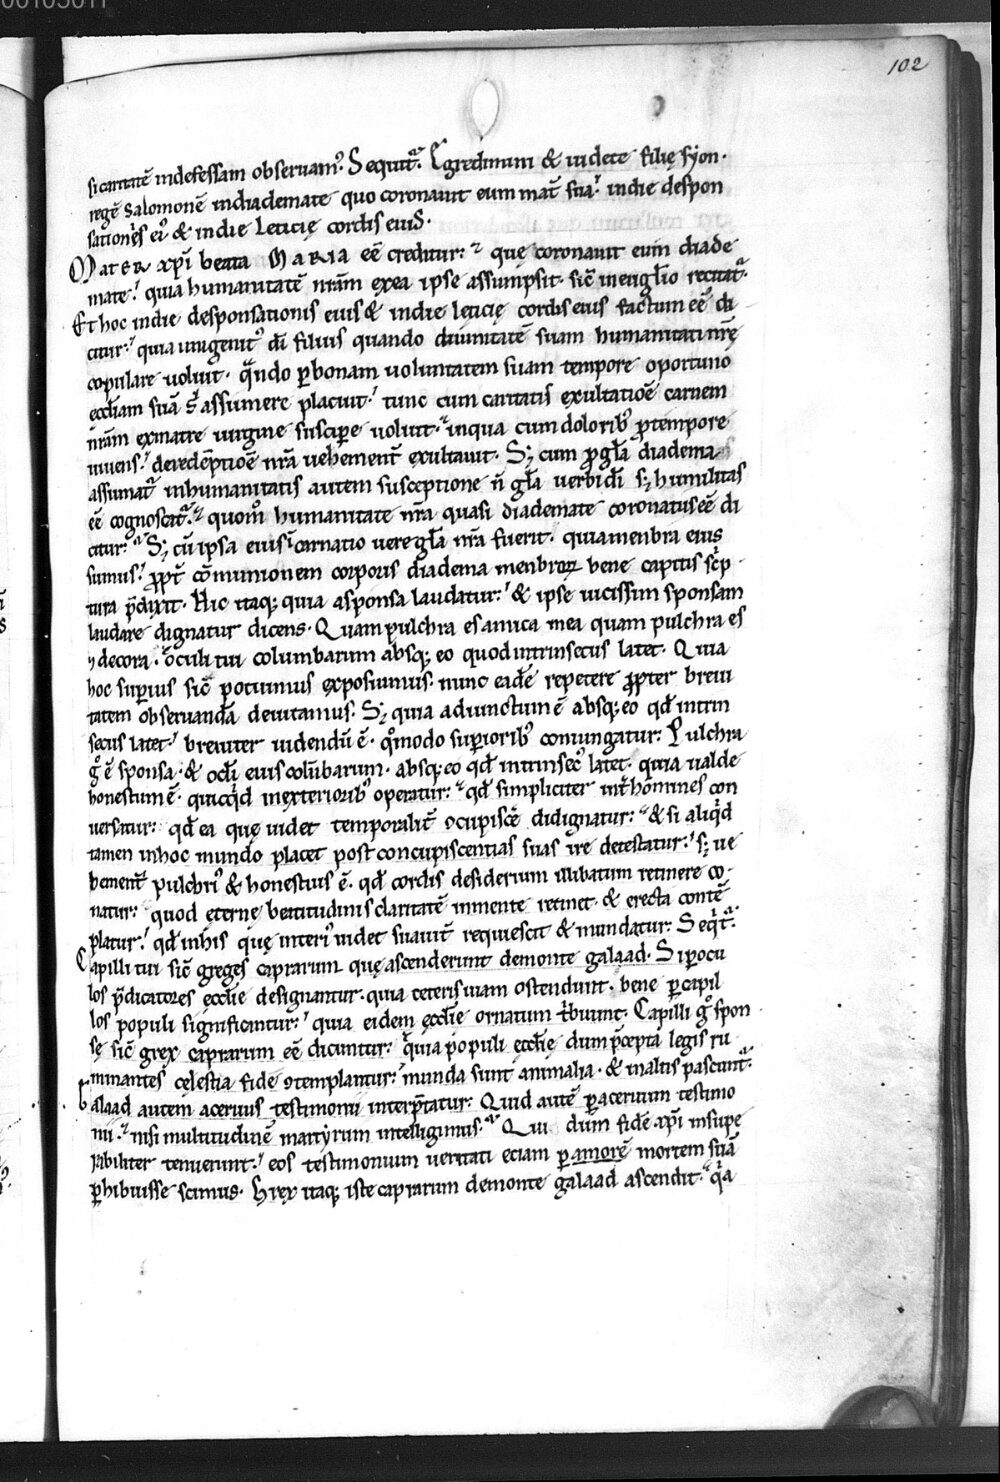 102
si caritatē indefessam obseruam᷒. Sequit᷑. Egredimini & uidete filię syon.
regē salomonē indiademate quo coronauit eum mat̄ sua. indie despon
sationis ei᷒ & indie leticię cordis eius.
Mater xp̄i beata MARIA eē creditur. quę coronauit eum diade
mate. quia humanitatē nr̄am exea ipse assumpsit. sic̄ ineuglīo recitat᷑.
Et hoc indie desponsationis eius & indie lęticię cordis eius factum eē di
citur. quia unigenit᷒ dī filius quando diuinitatē suam humanitati nr̄ę
copulare uoluit. q̄ndo ꝑbonam uoluntatem suam tempore oportuno
ecclīam suā assumere placuit. tunc cum caritatis exultatiōe carnem
nr̄am exmatre uirgine suscipe uoluit. inqua cum dolorib᷒ ꝓtempore
uiuens. deredēptiōe nr̄a uehement̄ exultauit. S; cum ꝓgl̄a diadema
assumat᷑ inhumanitatis autem susceptione n̄ gl̄a uerbi dī s; humilitas
eē cognoscat᷑. quom̊ humanitate nr̄a quasi diademate coronatus eē di
citur. S; cū ipsa eius icarnatio uere gl̄a nr̄a fuerit. quia menbra eius
sumus. ꝓpt̄ cōmunionem corporis diadema menbroꝝ bene capitis sc̄p
tura p̄dixit. Hic itaq; quia asponsa laudatur. & ipse uicissim sponsam
laudare dignatur dicens. Quam pulchra es amica mea quam pulchra es
⁊ decora. oculi tui columbarum absq; eo quod intrinsecus latet. Quia
hoc superius sic̄ potuimus exposuimus. nunc eadē repetere ꝓpter breui
tatem obseruandā deuitamus. S; quia adiunctum ē absq; eo qd̄ intrin
secus latet. breuiter uidendū ē. q̊modo superiorib᷒ coniungatur. Pulchra
g̊ ē sponsa. & oclī eius colūbarum. absq; eo qd̄ intrinsec᷒ latet. quia ualde
honestum ē. quicq̇d inexteriorib᷒ operatur. qd̄ simpliciter int̄ homines con
uersatur. qd̄ ea quę uidet temporalit̄ ꝯcupiscē didignatur. & si aliq̇d
tamen inhoc mundo placet post concupiscentias suas ire detestatur. s; ue
hement̄ pulchri᷒ & honestius ē. qd̄ cordis desiderium illibatum retinere co
natur. quod eternę beatitudinis claritatē inmente retinet. & erecta contē
platur. qd̄ inhis quę interi᷒ uidet suauit̄ requiescit & mundatur. Seq̇t᷑.
Capilli tui sic̄ greges caprarum quę ascenderunt demonte galaad. Si ꝑocu
los p̄dicatores ęcclīe designantur. quia ceteris uiam ostendunt. bene ꝑcapil
los populi significantur. quia eidem ęcclīe ornatum t̄buunt. Capilli g̊ spon
sę sic̄ grex caprarum eē dicuntur. quia populi ęcclīe dum p̄cepta legis ru
minantes cęlestia fide ꝯtemplantur. munda sunt animalia. & inaltis pascunt᷑.
Galaad autem aceruus testimonii interp̄tatur. Quid autē ꝑaceruum testimo
nii. nisi multitudinē martyrum intelligimus. Qui dum fidē xp̄i insupe
rabiliter tenuerunt. eos testimonium ueritati etiam ꝑamorē mortem suā
ꝑhibuisse scimus. Grex itaq; iste caprarum demonte galaad ascendit. q̇a